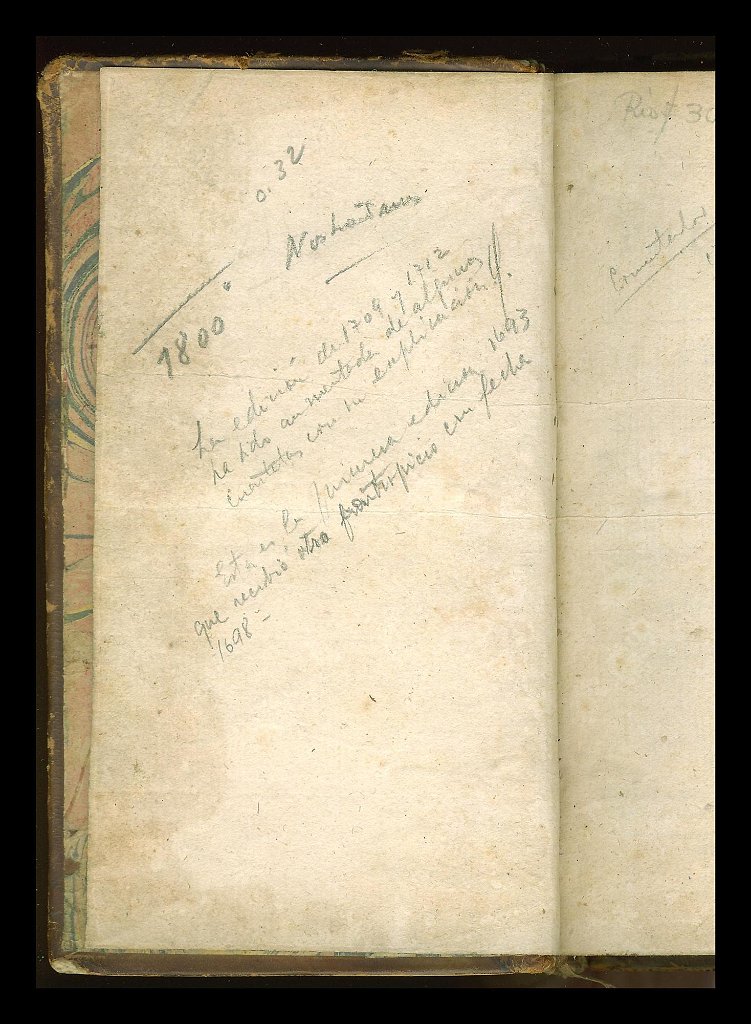 0.32
Nostradamus
1800
La edición de 1709 y 1712
ha sido aumentada de algunas
cuartetas con su explicación
Esta es la primera edicion 1693
que recibió otro frontispicio con fecha
1698 -
Rioy 30
Comentador